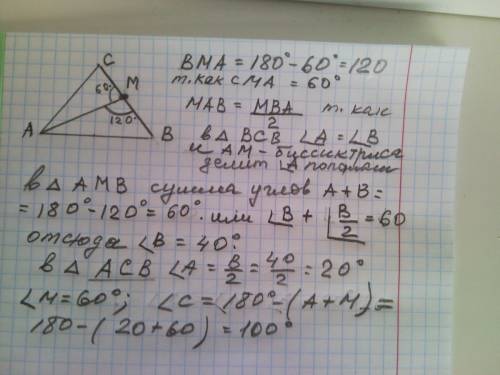 C
M
60°
A
120°
B
BMA = 180° - 60° = 120
т.как CMA = 60°
MAB = MBA/2 т. как
в △ BCB ∠A = ∠B
и AM - биссиктриса
делит ∠A пополам
в △ AMB сумма углов A+B =
= 180° - 120° = 60°. или ∠B + ∠B/2 = 60
отсюда ∠B = 40°.
в △ ACB ∠A = B/2 = 40/2 = 20°
∠M = 60°; ∠C = 180° - (A+M) =
180 - (20+60) = 100°